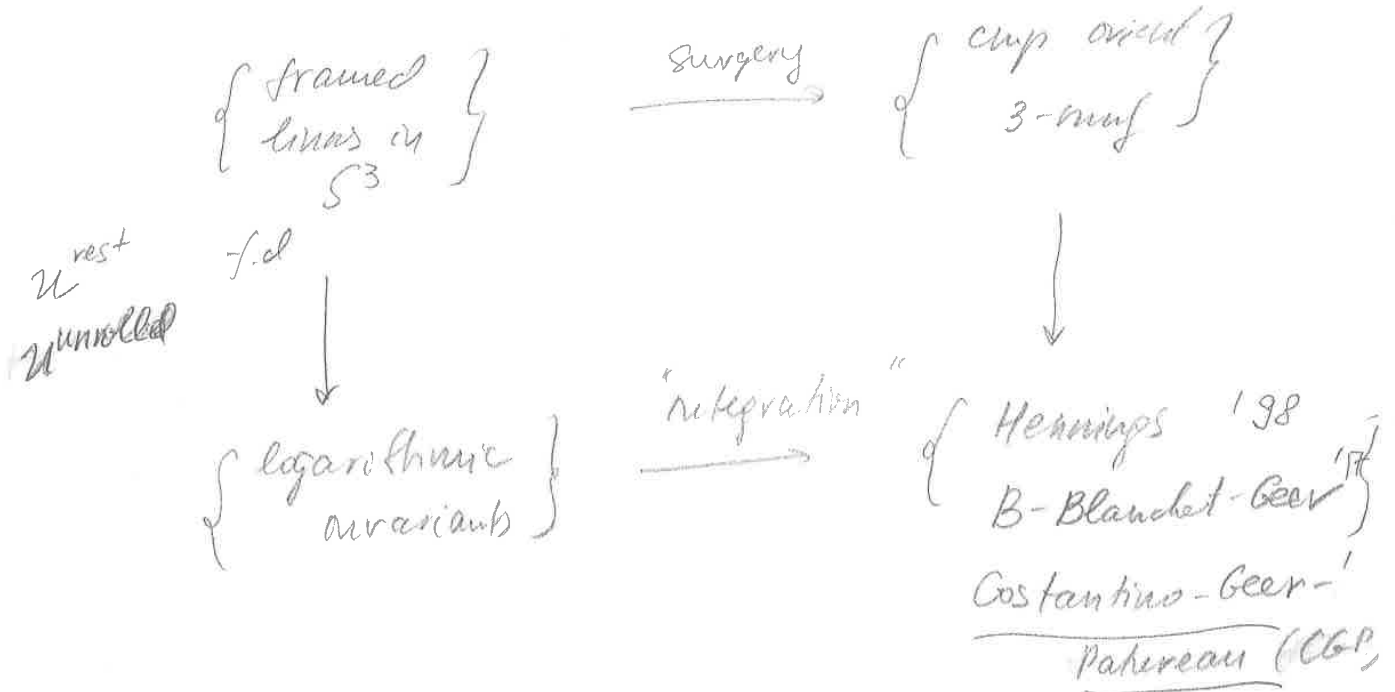 { framed
links in
S³ }
surgery
{ cmp orient
3-mnf }
U^rest f.d
U^unrolled
{ logarithmic
invariants }
"integration"
{ Hennings '98
B-Blanchet-Geer '17 }
Costantino-Geer-
Patureau (CGP)